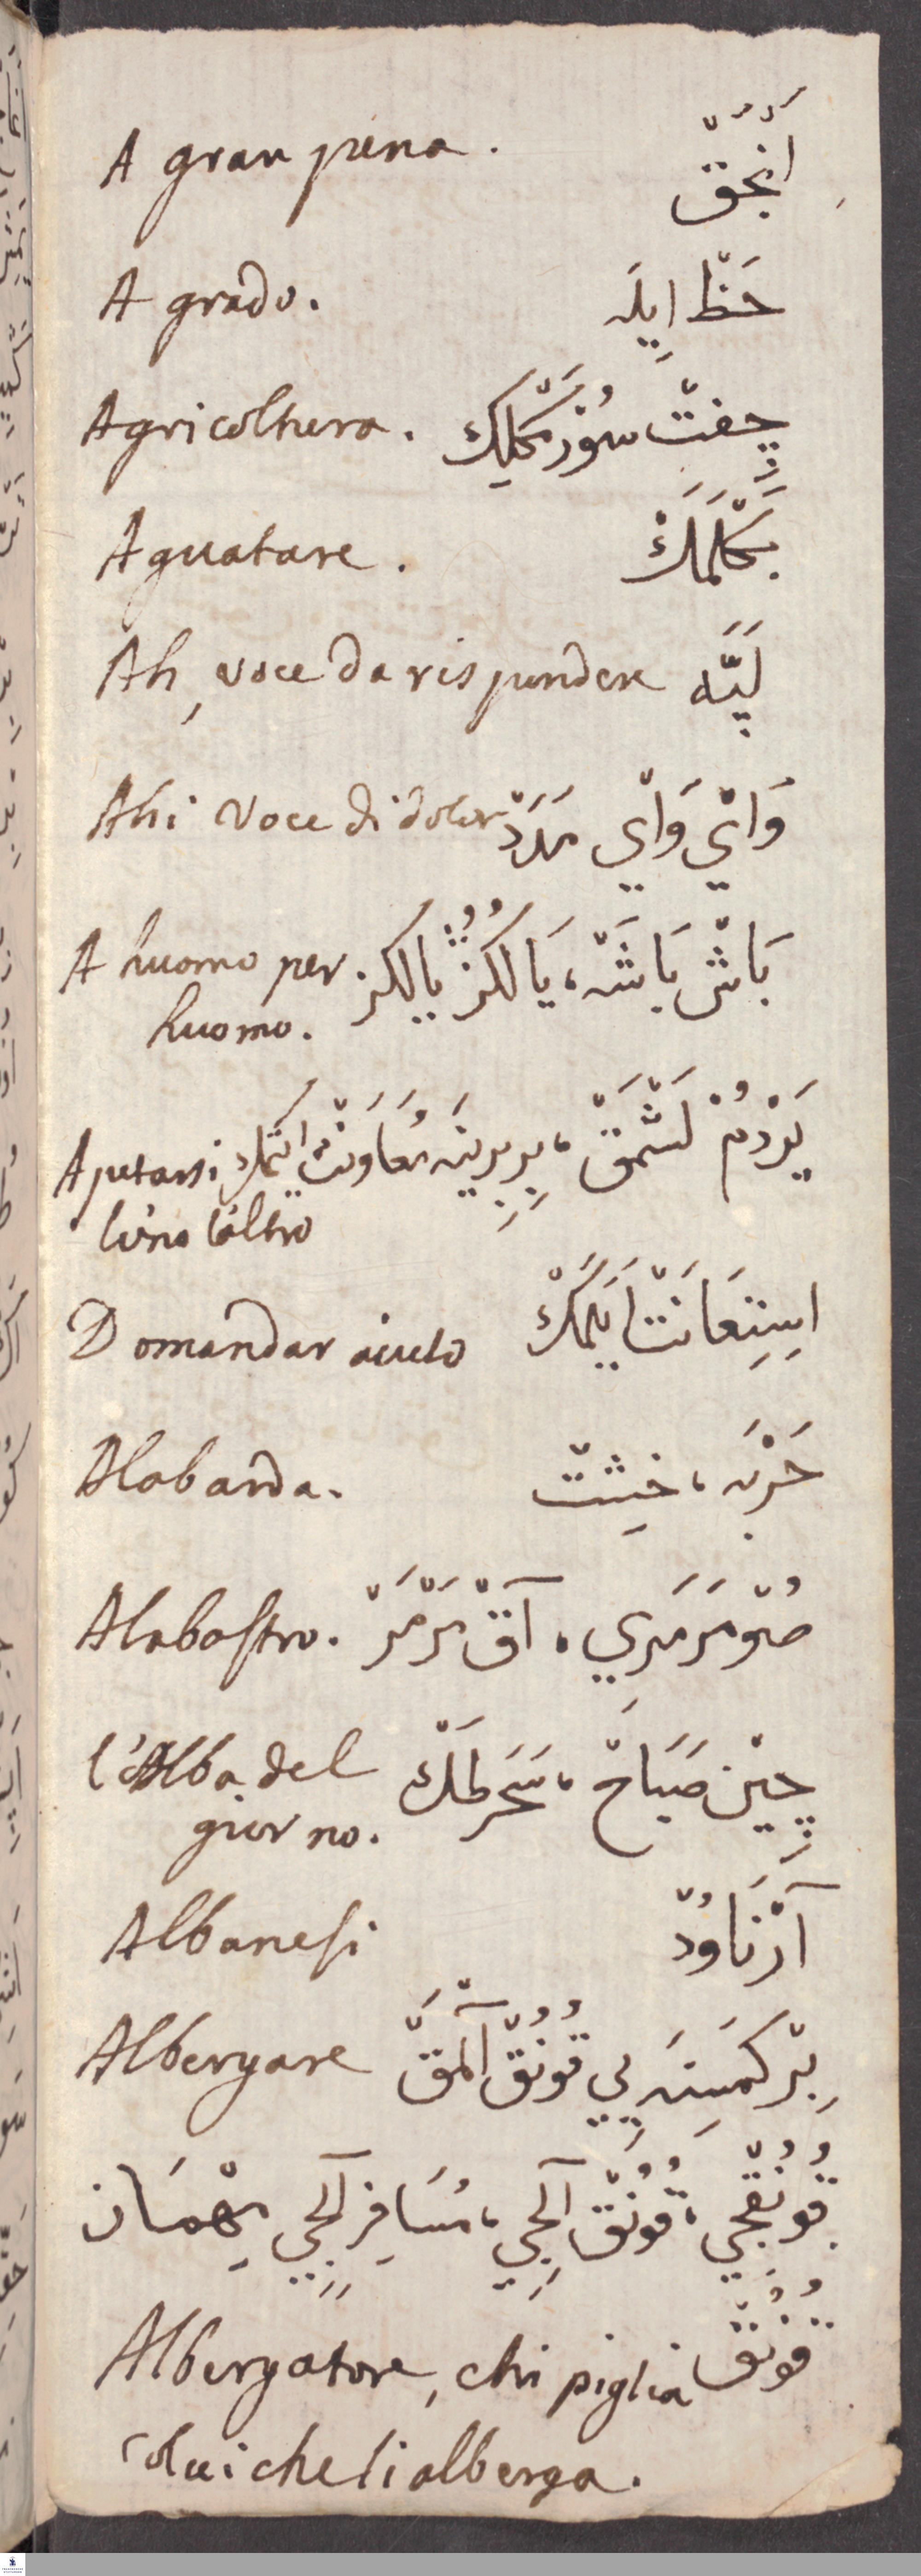 A gran pena . اَنْجَقّ
A grado . حَظّ اِيلَه
Agricoltura . چِفتّ سُوْرمَكْلِيك
Aguatare . بَكْلَمَكْ
Ah, voce da rispondere لَبَّيه
Ahi voce di dolor وَايْ وَايْ مَدَدْ
A huomo per . بَاشْ بَاشَه ، يَالكُزْ يالكز
huomo .
Ajutarsi يَرْدُمْ لَشْمَقْ ، بِرِبِرِينَه مُعَاوَنَتْ ايتمَك
l'uno l'altro
Domandar aiuto اِسِتِعَانَتْ اَيلَمَكْ
Alabarda . حَرْبَه ، خِشتّ
Alabastro . صُوّ مَرمَرِي ، آقْ مَرْمَرْ
l'Alba del چِيْن صَبَاحْ ، سَحَر
giorno .
Albanesi آرْنَاوُدّ
Albergare بِرْ كمسَنَه يِي قُونُقْ آلْمَقّ
قُونُقْجِي ، قُونُقْ آلِجِي ، مُسَافِر آلِجِي مِهْمَان
Albergatore, chi piglia قُونُقْ
colui che li alberga .